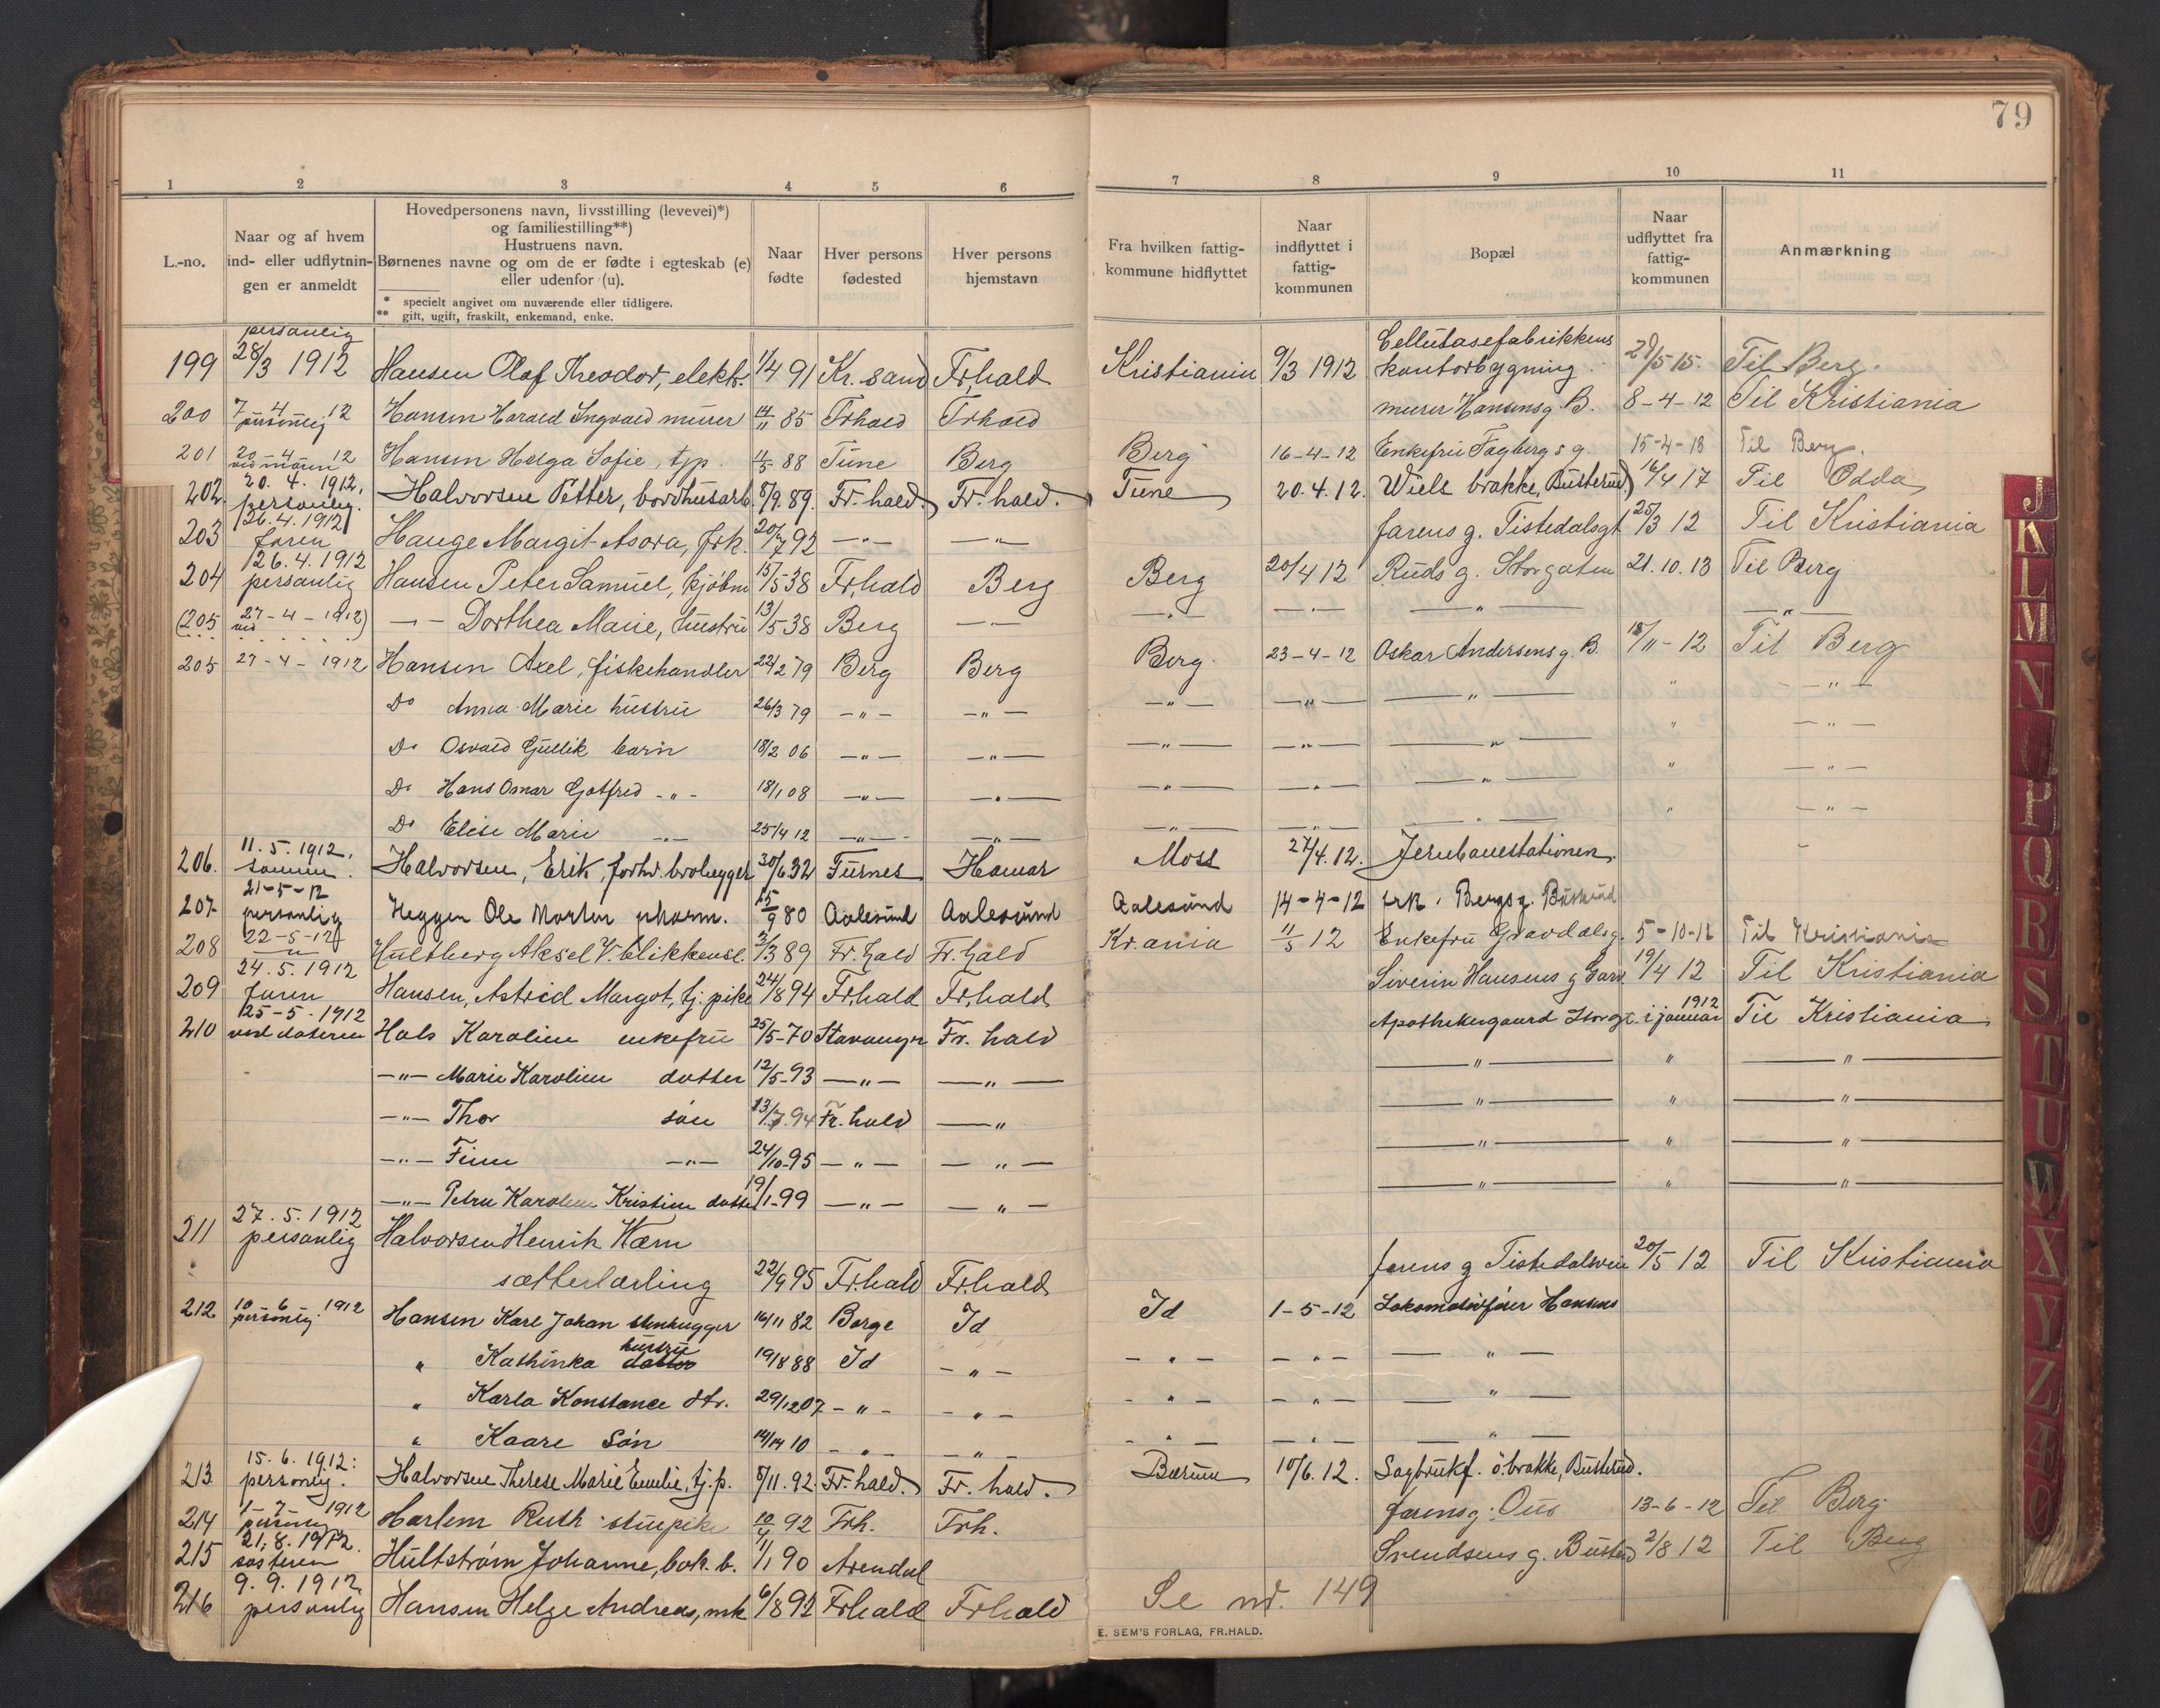 79
1 2 3 4 5 6 7 8 9 10 11
L.-no.
Naar og af hvem
ind- eller udflytnin-
gen er anmeldt
Hovedpersonens navn, livsstilling (levevei)*)
og familiestilling**)
Hustruens navn.
Børnenes navne og om de er fødte i egteskab (e)
eller udenfor (u).
* specielt angivet om nuværende eller tidligere.
** gift, ugift, fraskilt, enkemand, enke.
Naar
fødte
Hver persons
fødested
Hver persons
hjemstavn
Fra hvilken fattig-
kommune hidflyttet
Naar
indflyttet i
fattig-
kommunen
Bopæl
Naar
udflyttet fra
fattig-
kommunen
Anmærkning
personlig Cellulosefabrikkens
199 28/3 1912 Hansen Olaf Theodor, elektr. 1/4 91 Kr. sand Frhald Kristiania 9/3 1912 kontorbygning 29/5 15. Til Berg.
200 7 4 12 personlig Hansen Harald Ingvald murer 14/11 85 Frhald Frhald murer Hansens g. B. 8-4-12 Til Kristiania
201 20-4-12 Hansen Helga Sofie, tjp. 11/5 88 Tune Berg Berg 16-4-12 Enkefru Fagbergs g. 15-4-13 Til Berg.
202. 20. 4. 1912, personlig. Halvorsen Petter, bordhusarb. 8/9. 89. Fr. hald. Fr. hald. Tune 20.4.12. Wiels brakke, Busterud 16/4 17 Til Odda
203 26. 4. 1912 faren Hauge Margit Asora, frk. 20/7 92 —"— —"— farens g. Tistedalsgt 25/3 12 Til Kristiania
204 26. 4. 1912 personlig Hansen Peter Samuel, kjøbm 15/5 38 Frhald Berg Berg 20/4 12 Ruds g. Storgaten 21.10.13 Til Berg
(205 27-4-1912) — — Dorthea Marie, hustru 13/5 38 Berg —"— —"— —"— —"— —"—
205 27-4-1912 Hansen Axel, fiskehandler 22/2 79 Berg Berg Berg 23-4-12 Oskar Andersens g. B. 18/11-12 Til Berg
Do Anna Marie hustru 26/3 79 —"— —"— —"— —"— —"— " —"—
Do Osvald Gullik barn 18/2 06 —"— —"— —"— —"— —"— " —"—
Do Hans Omar Gotfred —"— 18/1 08 —"— —"— —"— —"— —"— " —"—
Do Elise Marie —"— 25/4 12 —"— —"— —"— —"— —"— " —"—
206. 11. 5. 1912, Halvorsen, Erik, forhv. brolegger 30/6 32 Furnes Hamar Moss 27/4. 12. Jernbanestationen.
207. 21-5-12 personlig Heggen Ole Morten pharm. 15/9 80 Aalesund Aalesund Aalesund 14-4-12 frk. Bergs g. Busterud
208 22-5-12 —"— Hultberg Aksel V. blikkensl. 3/3 89 Fr. hald Fr. hald Kr.ania 11/5 12 Enkefru Gravdals g. 5-10-12 Til Kristiania
209 24. 5. 1912 faren Hansen, Astrid Margot, tj. pike 24/8 94 Frhald Frhald Severin Hansens g 19/4 12 Til Kristiania
210 25-5-1912 ved datteren Hals Karoline enkefru 25/5-70 Stavanger Fr. hald Apothekergaard Storgt. i januar 1912 Til Kristiania
—"— Marie Karoline datter 12/5-93 —"— —"— —"— " —"—
—"— Thor søn 13/7. 94 Fr. hald —"— —"— " —"—
—"— Finn —"— 24/10-95 —"— —"— —"— " —"—
—"— Petra Karoline Kristine datter 19/1-99 —"— —"— —"— " —"—
211 27. 5. 1912 personlig Halvorsen Henrik Wærn
sætterlærling 22/9 95 Frhald Frhald farens g Tistedalsvein 20/5 12 Til Kristiania
212 10 6 1912 personlig. Hansen Karl Johan stenhugger 16/11 82 Borge Id Id 1-5-12 Lokomotivfører Hansens
" Kathinka hustru 19/8 88 Id —"— —"— —"— —"—
" Karla Konstance dtr. 29/12 07 —"— —"— —"— —"— —"—
" Kaare Søn 14/14 10 —"— —"— —"— —"— —"—
213 15. 6. 1912: personlig. Halvorsen Therese Marie Emilie, tj.p. 8/11. 92. Fr. hald. Fr. hald. Bærum 10/6. 12. Sagbrukf. ö. brakke, Busterud.
214 1-7-1912 personlig Harlem Ruth stuepike 10/4 92 Frh. Frh. farens g. Ous 13-6-12 Til Berg
215 21. 8. 1912. søsteren Hultstrøm Johanne, bok. b. 1/1 90 Arendal Svendsens g. Busterud 2/8 12 Til Berg
216 9. 9. 1912, personlig Hansen Helge Andreas, mk 6/8 92 Frhald Frhald Se nr. 149
E. SEM'S FORLAG, FR.HALD.
J
K
L
M
N
O
P
Q
R
S
T
U
W
X
Y
Z
Æ
Ø